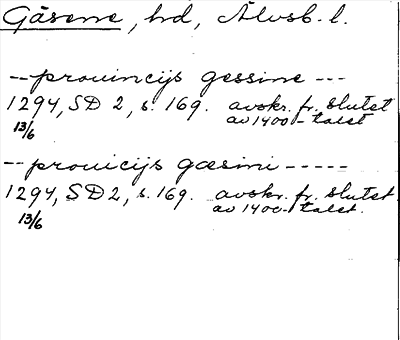 Gäsene, hd, Älvsb. l.
-- prouincijs gessine ---
1294, SD 2, s. 169. avskr. fr. slutet
13/6 av 1400-talet
-- prouicijs gæsini -----
1294, SD 2, s. 169. avskr. fr. slutet
13/6 av 1400-talet.